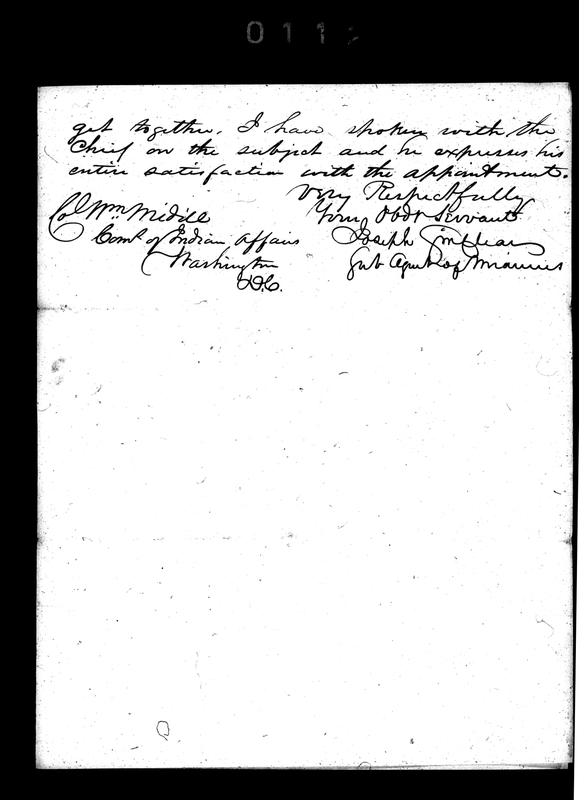 011
get together. I have spoken with the
Chief on the subject and he expresses his
entire satisfaction with the appointment.
Very Respectfully
Your Obdt Servant
Joseph Sinclear
Sub Agent of Miamies
Col Wm Midill
Comr of Indian Affairs
Washington
D.C.